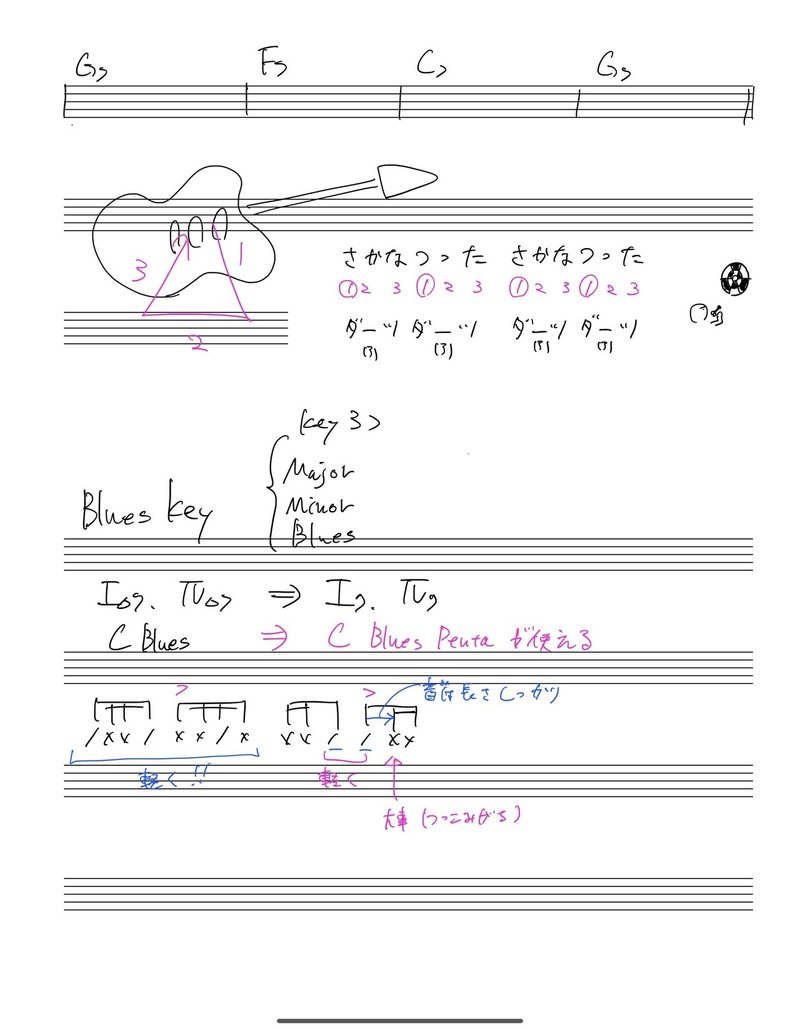 G7 F7 C7 G7
さかなつった さかなつった
① 2 3 ① 2 3 ① 2 3 ① 2 3
3 1
ダーツ ダーツ ダーツ ダーツ
(3) (3) (3) (3)
2
key 3つ
Major
Blues key
Minor
Blues
I△7. IV△7 ⇒ I7. IV7
C Blues ⇒ C Blues Penta が使える
> > 音は長さしっかり
/ x x / x x / x x x / / x x
軽く!! 軽く
大事 (つっこみがち)